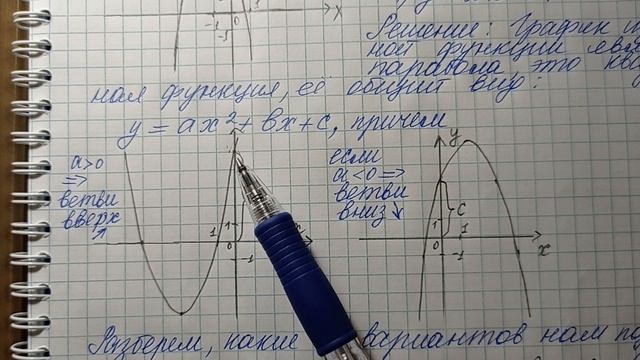 -1 0 x
Решение: График
ной функции
парабола это
ная функция, её общий вид:
y = ax²+bx+c, причём
a>0
=>
ветви
вверх
↗
1 1 0 -1
если
a<0 =>
ветви
вниз ↘
y
c
1 0 1 -1 x
Разберем, какие вариантов нам